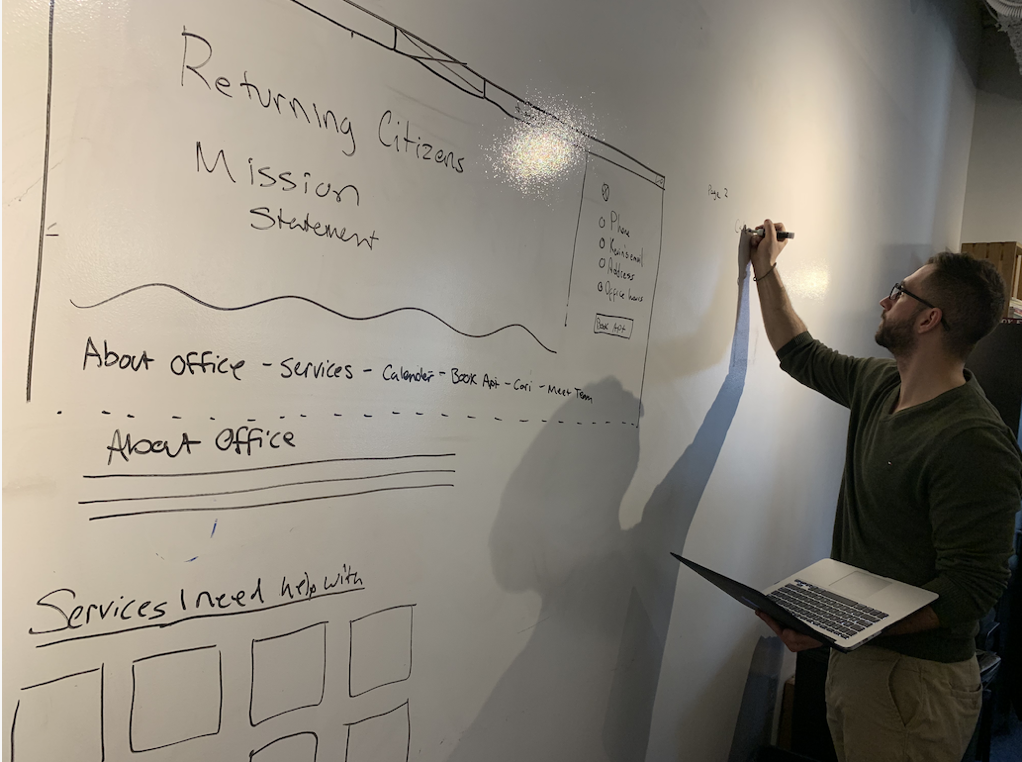 Returning Citizens
Mission
Statement
Phone
Address
Office hours
Book Apt
About office - Services - Calender - Book Apt - Cori - Meet Team
About Office
Services I need help with
Page 2